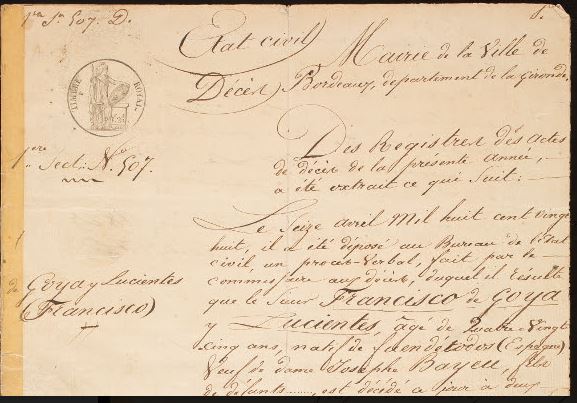 1ere Son 507. D.
1.
Etat civil
Décès
Mairie de la Ville de
Bordeaux, departement de la Gironde.
TIMBRE ROYAL
1ere Sect: No. 507.
Des Registres des Actes
de décès de la présente Année,
a été extrait ce qui Suit:
Le Seize avril Mil huit cent vingt
huit, il a été déposé au Bureau de l'Etat
civil, un procès-Verbal, fait par le
commissaire aux décès, duquel il résulte
que le Sieur Francisco de Goya
y Lucientes, âgé de Quatre-Vingt
Cinq ans, natif de faendétodos (Espagne)
Veuf de dame Josephe Bayeu, fils
de défunts ........, est décédé ce jour à deux
de Goya y Lucientes
(Francisco)